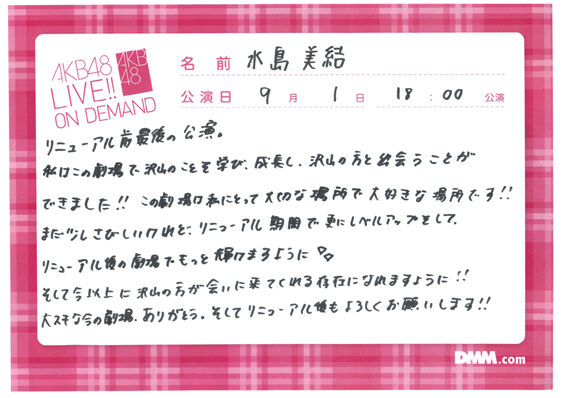 AKB48
LIVE!!
ON DEMAND
AKB
48
名前 水島美結
公演日 9月1日 18:00公演
リニューアル前最後の公演。
私はこの劇場で沢山のことを学び、成長し、沢山の方と出会うことが
できました!! この劇場は私にとって大切な場所で大好きな場所です!!
まだ少しさびしいけれど、リニューアル期間で更にレベルアップをして、
リニューアル後の劇場でもっと輝けますように
そして今以上に沢山の方が会いに来てくれる存在になれますように!!
大スキな今の劇場、ありがとう。そしてリニューアル後もよろしくお願いします!!
DMM.com